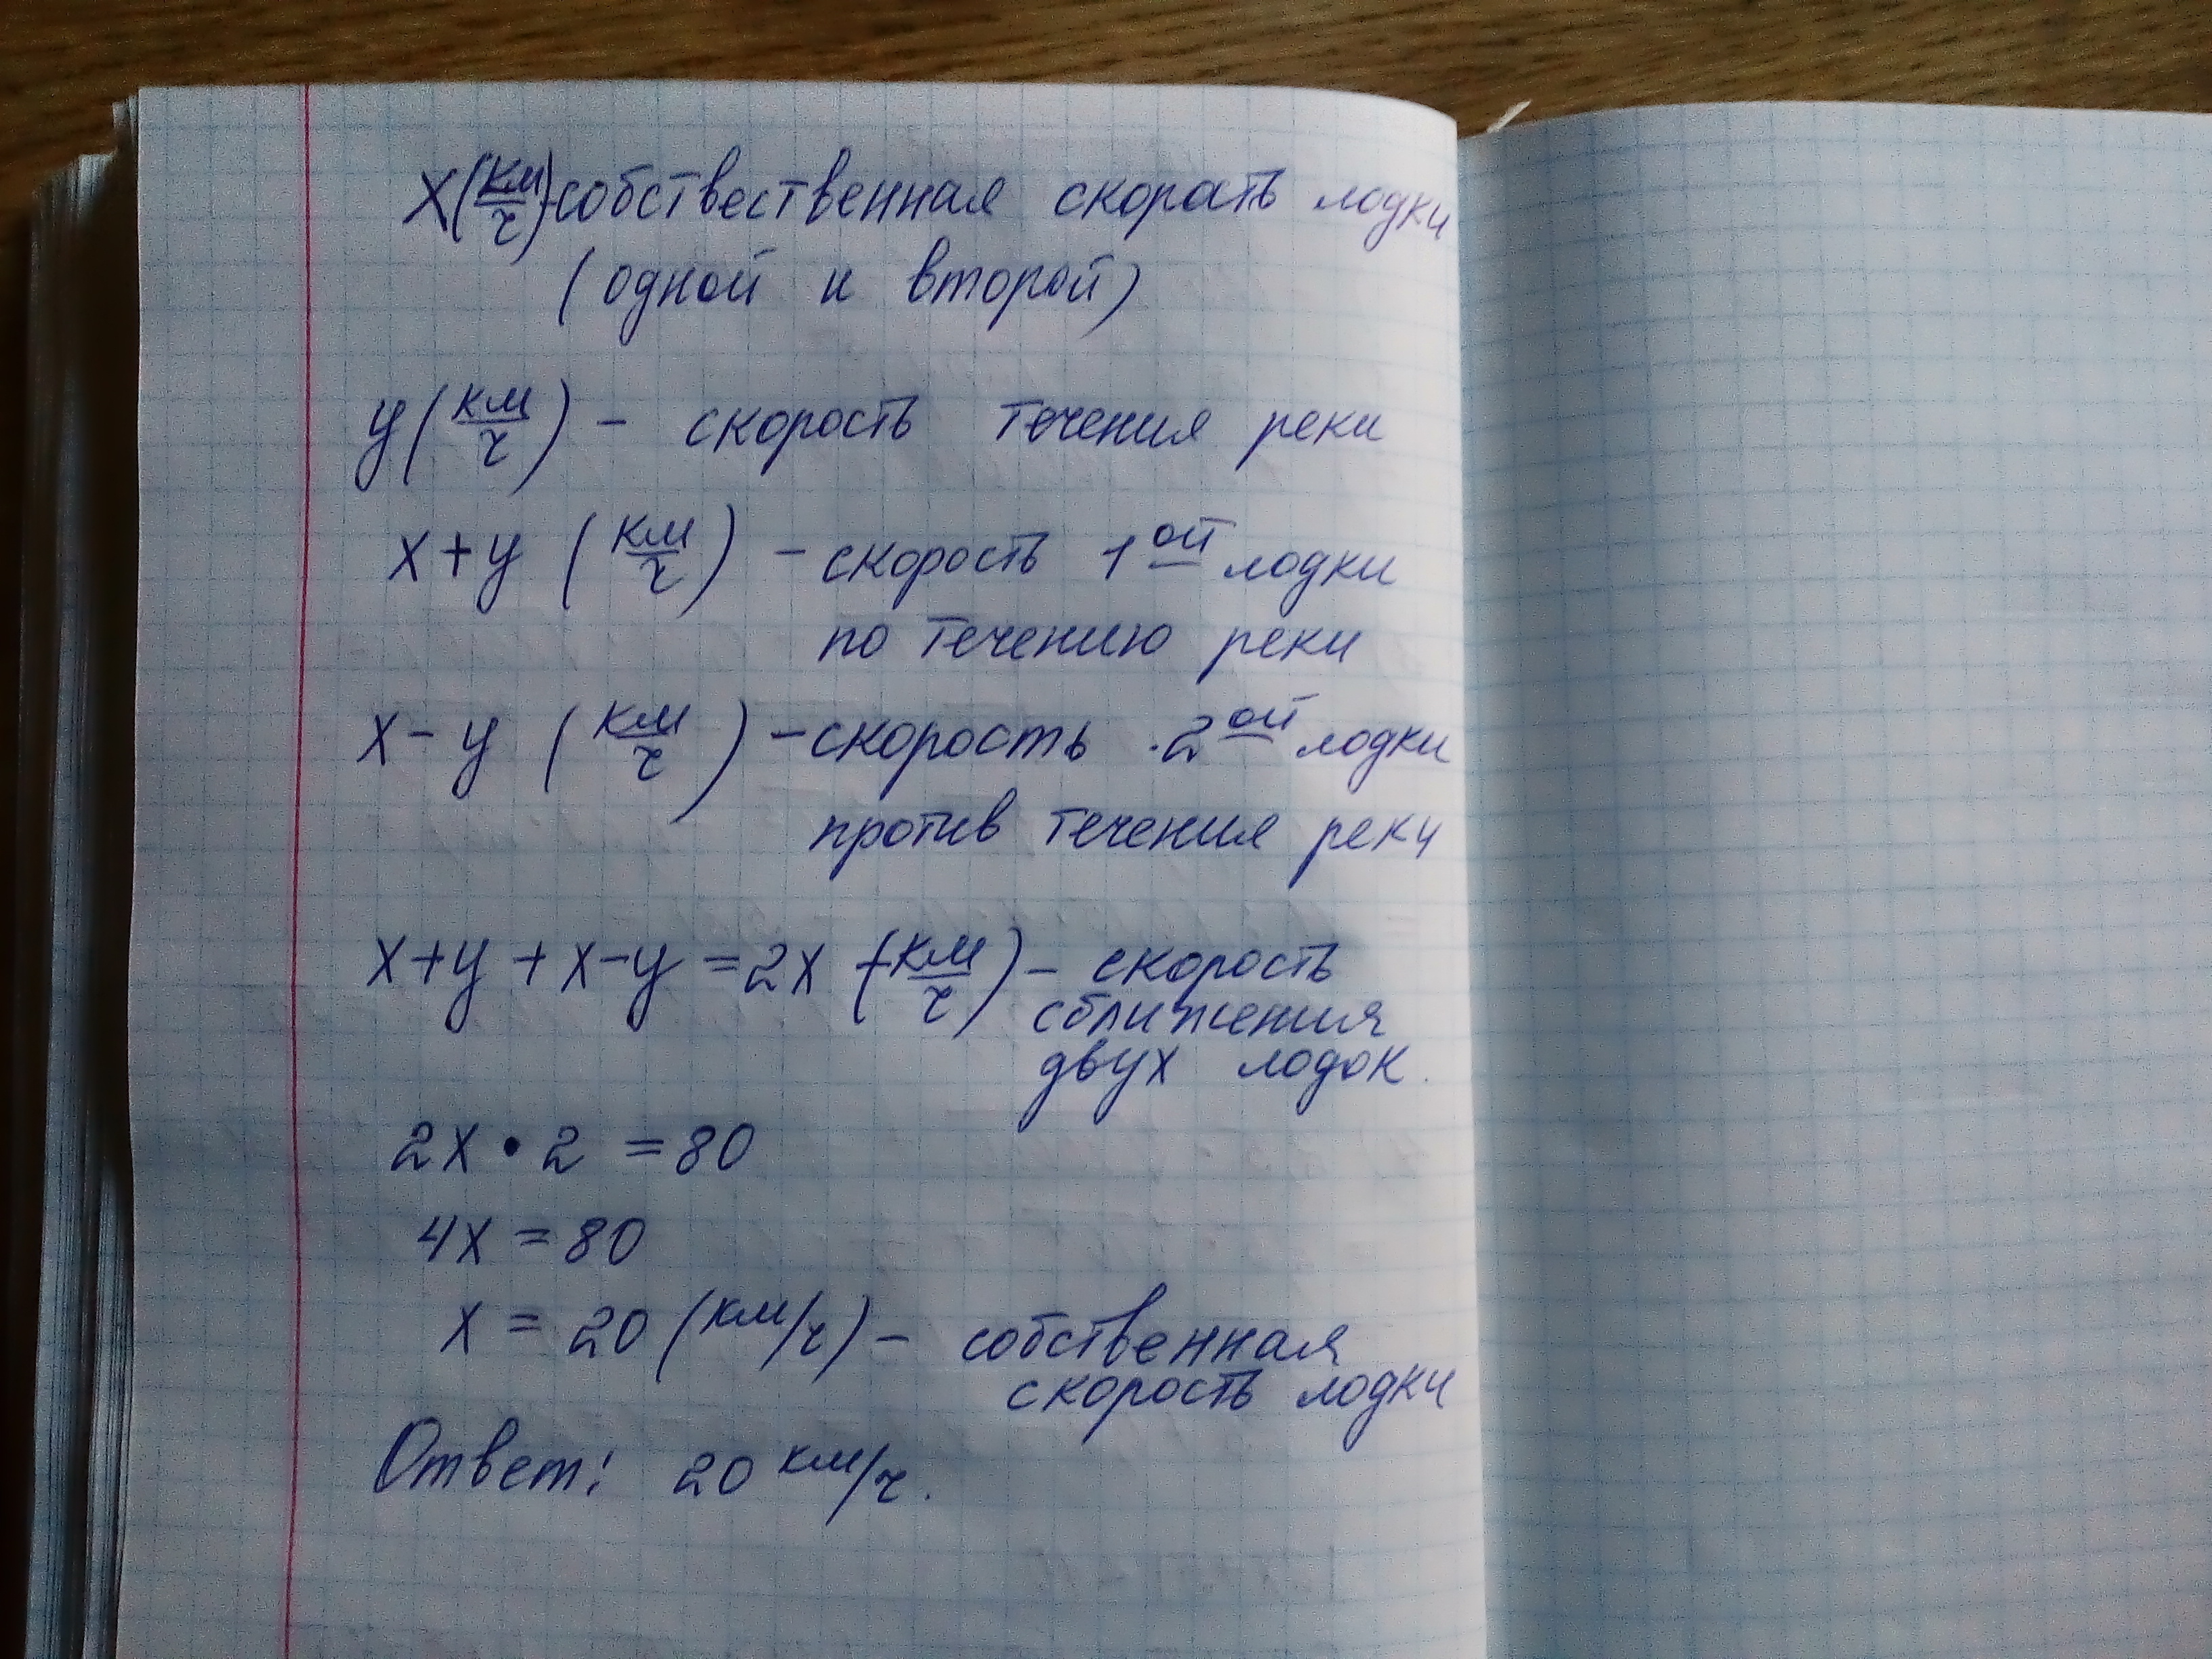 x (км/ч) - собствественная скорость лодки
(одной и второй)
y (км/ч) - скорость течения реки
x + y (км/ч) - скорость 1ой лодки
по течению реки
x - y (км/ч) - скорость 2ой лодки
против течения реки
x + y + x - y = 2x (км/ч) - скорость
сближения
двух лодок.
2x • 2 = 80
4x = 80
x = 20 (км/ч) - собственная
скорость лодки
Ответ: 20 км/ч.